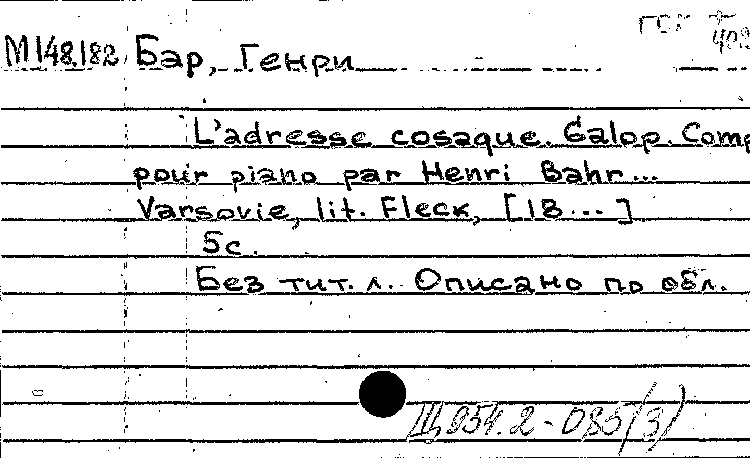 ГСК +
М148.182 Бар, Генри
L'adresse cosaque. Galop. Comp
pour piano par Henri Bahr...
Varsovie, lit. Fleck, [18...]
5с.
Без тит. л. Описано по обл.
Щ954.2-085(3)